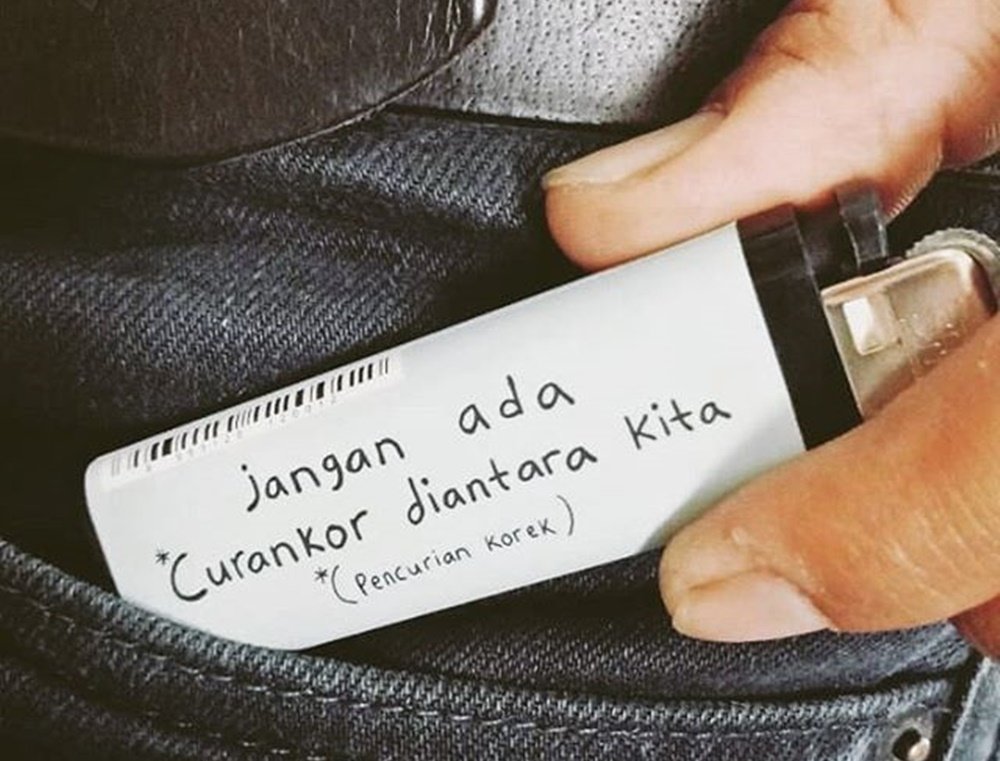 jangan ada
*Curankor diantara kita
*(Pencurian korek)